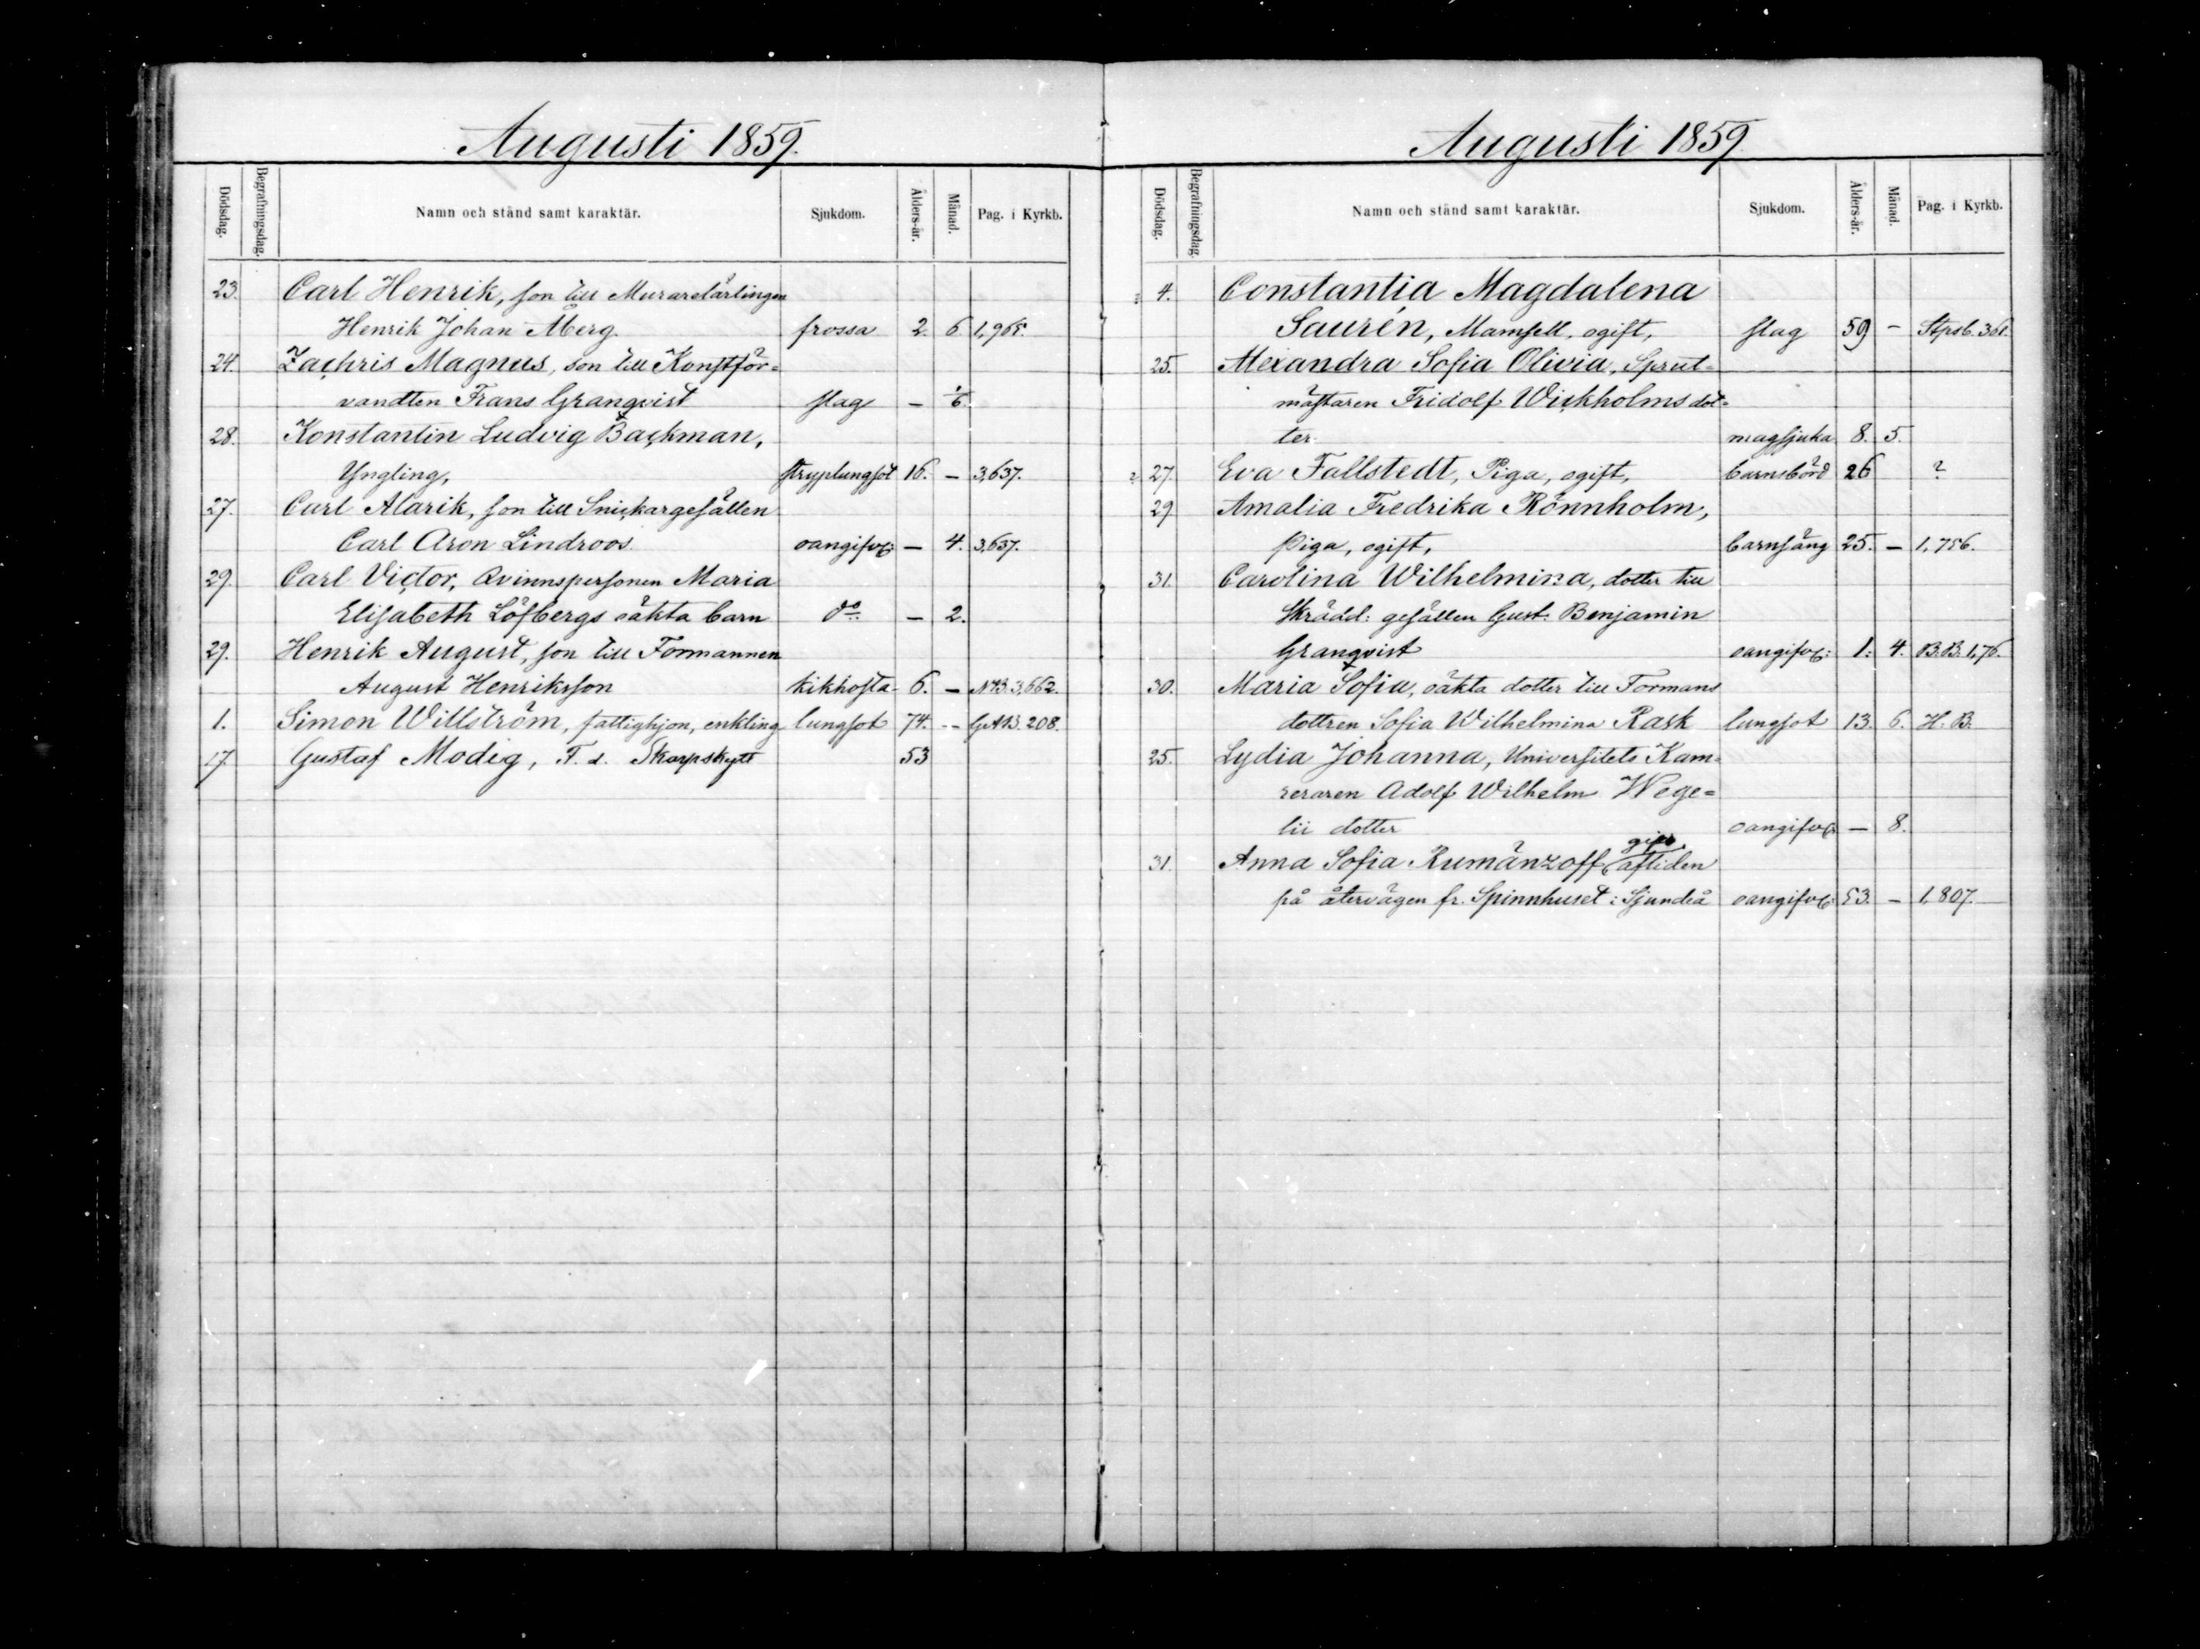 Augusti 1859.
Dödsdag. Begrafningsdag. Namn och stånd samt karaktär. Sjukdom. Ålders-år. Månad. Pag. i Kyrkb.
23. Carl Henrik, son till Murarelärlingen
Henrik Johan Åberg. frossa 2. 6. 1,965.
24. Zachris Magnus, son till Konstför-
vandten Frans Granqvist slag — 1/6.
28. Konstantin Ludvig Backman,
Yngling, struplungsot 16. — 3,637.
27. Carl Alarik, son till Snickargesällen
Carl Aron Lindroos. oangifv: — 4. 3,637.
29. Carl Victor, Qvinnspersonen Maria
Elisabeth Löfbergs oäkta barn do — 2.
29. Henrik August, son till Formannen
August Henriksson kikhosta 6. — NKB. 3,662.
1. Simon Willström, fattighjon, enkling lungsot 74. — GAKB. 208.
17. Gustaf Modig, F. d. Skarpskytt 53
Augusti 1859
Dödsdag. Begrafningsdag. Namn och stånd samt karaktär. Sjukdom. Ålders-år. Månad. Pag. i Kyrkb.
4. Constantia Magdalena
Saurén, Mamsell, ogift, slag 59 — Stpsb. 361.
25. Alexandra Sofia Olivia, Sprut-
mästaren Fridolf Wickholms dot-
ter. magsjuka 8. 5.
27. Eva Fallstedt, Piga, ogift, barnsbörd 26 ?
29 Amalia Fredrika Rönnholm,
Piga, ogift, barnsäng 25. — 1,756.
31. Carolina Wilhelmina, dotter till
Skrädd: gesällen Gust. Benjamin
Granqvist oangifv: 1. 4. B.B. 1,76.
30. Maria Sofia, oäkta dotter till Formans
dottren Sofia Wilhelmina Rask lungsot 13. 6. H. B.
25. Lydia Johanna, Universitets Kam-
reraren Adolf Wilhelm Wege-
lii dotter oangifv: — 8.
gift,
31. Anna Sofia Rumänzoff, aftiden
på återvägen fr. Spinnhuset i Sjundeå oangifv: 53. — 1,807.